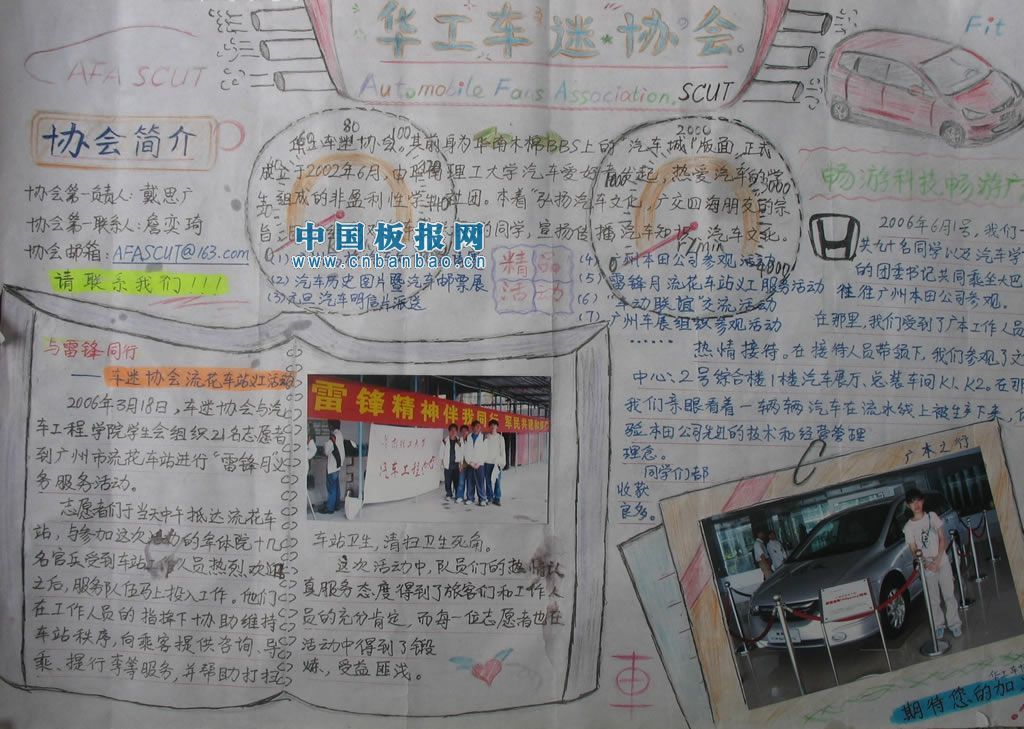 华工车迷协会
Automobile Fans Association, SCUT
AFA SCUT
Fit
协会简介
协会第一负责人: 戴思广
协会第一联系人: 詹奕琦
协会邮箱: AFASCUT@163.com
请联系我们!!!
80
100
2000
3000
4000
r/min
车迷协会。其前身为华南木棉BBS上的“汽车城”版面,正式
成立于2002年6月,由华南理工大学汽车爱好者发起,热爱汽车的学
生组成的非盈利性学生社团。本着“弘扬汽车文化,广交四海朋友的宗
旨
的同学,宣扬传播汽车知识、汽车文化.
中国板报网
www.cnbanbao.cn
精品
活动
(2) 汽车历史图片暨汽车邮票展
(3) 元旦汽车明信片派送
(4) 广州本田公司参观活动
(5) 雷锋月流花车站义工服务活动
(6) “车动联谊”交流活动
(7) 广州车展组织参观活动
······
与雷锋同行
——车迷协会流花车站义工活动
2006年3月18日,车迷协会与汽
车工程学院学生会组织21名志愿者
到广州市流花车站进行“雷锋月”义
务服务活动。
志愿者们于当天中午抵达流花车
站,与参加这次活动的军体院十几
名官兵受到车站工作人员热烈欢迎
之后,服务队伍马上投入工作。他们
在工作人员的指挥下协助维持
车站秩序,向乘客提供咨询、导
乘、提行李等服务,并帮助打扫
雷锋精神伴我同行
汽车工程学院
车站卫生,清扫卫生死角。
这次活动中,队员们的热情认
真服务态度得到了旅客们和工作人
员的充分肯定,而每一位志愿者也在
活动中得到了锻
炼、受益匪浅。
車
畅游科技 畅游广
2006年6月1号,我们一
共九十名同学以及汽车学
的团委书记共同乘坐大巴
往广州本田公司参观。
在那里,我们受到了广本工作人员
热情接待。在接待人员带领下,我们参观了文
中心:2号综合楼1楼汽车展厅、总装车间K1、K2。在那
我们亲眼看着一辆辆汽车在流水线上被生产下来,体
验本田公司先进的技术和经营管理
理念。
同学们都
收获
良多。
广本之行
期待您的加